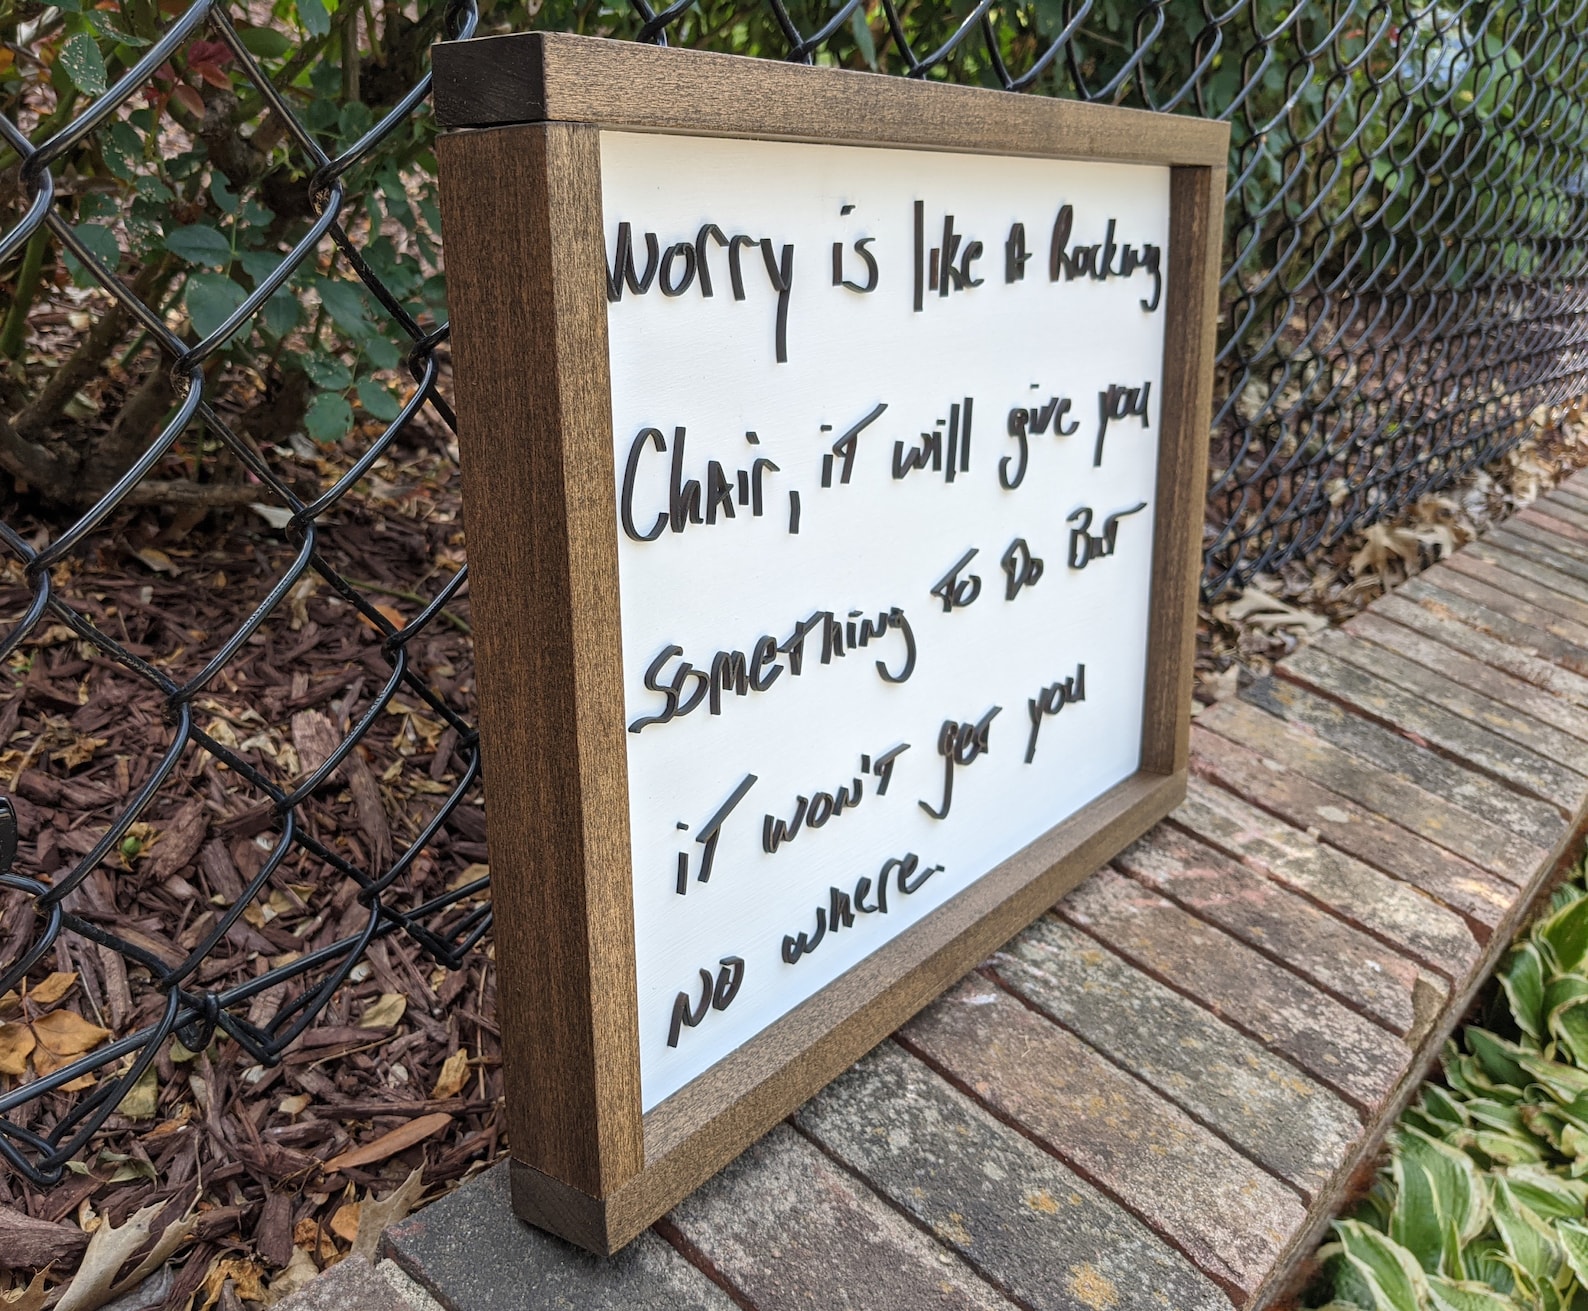 Worry is like A Rocking
Chair, it will give you
something to Do But
it won't get you
no where.